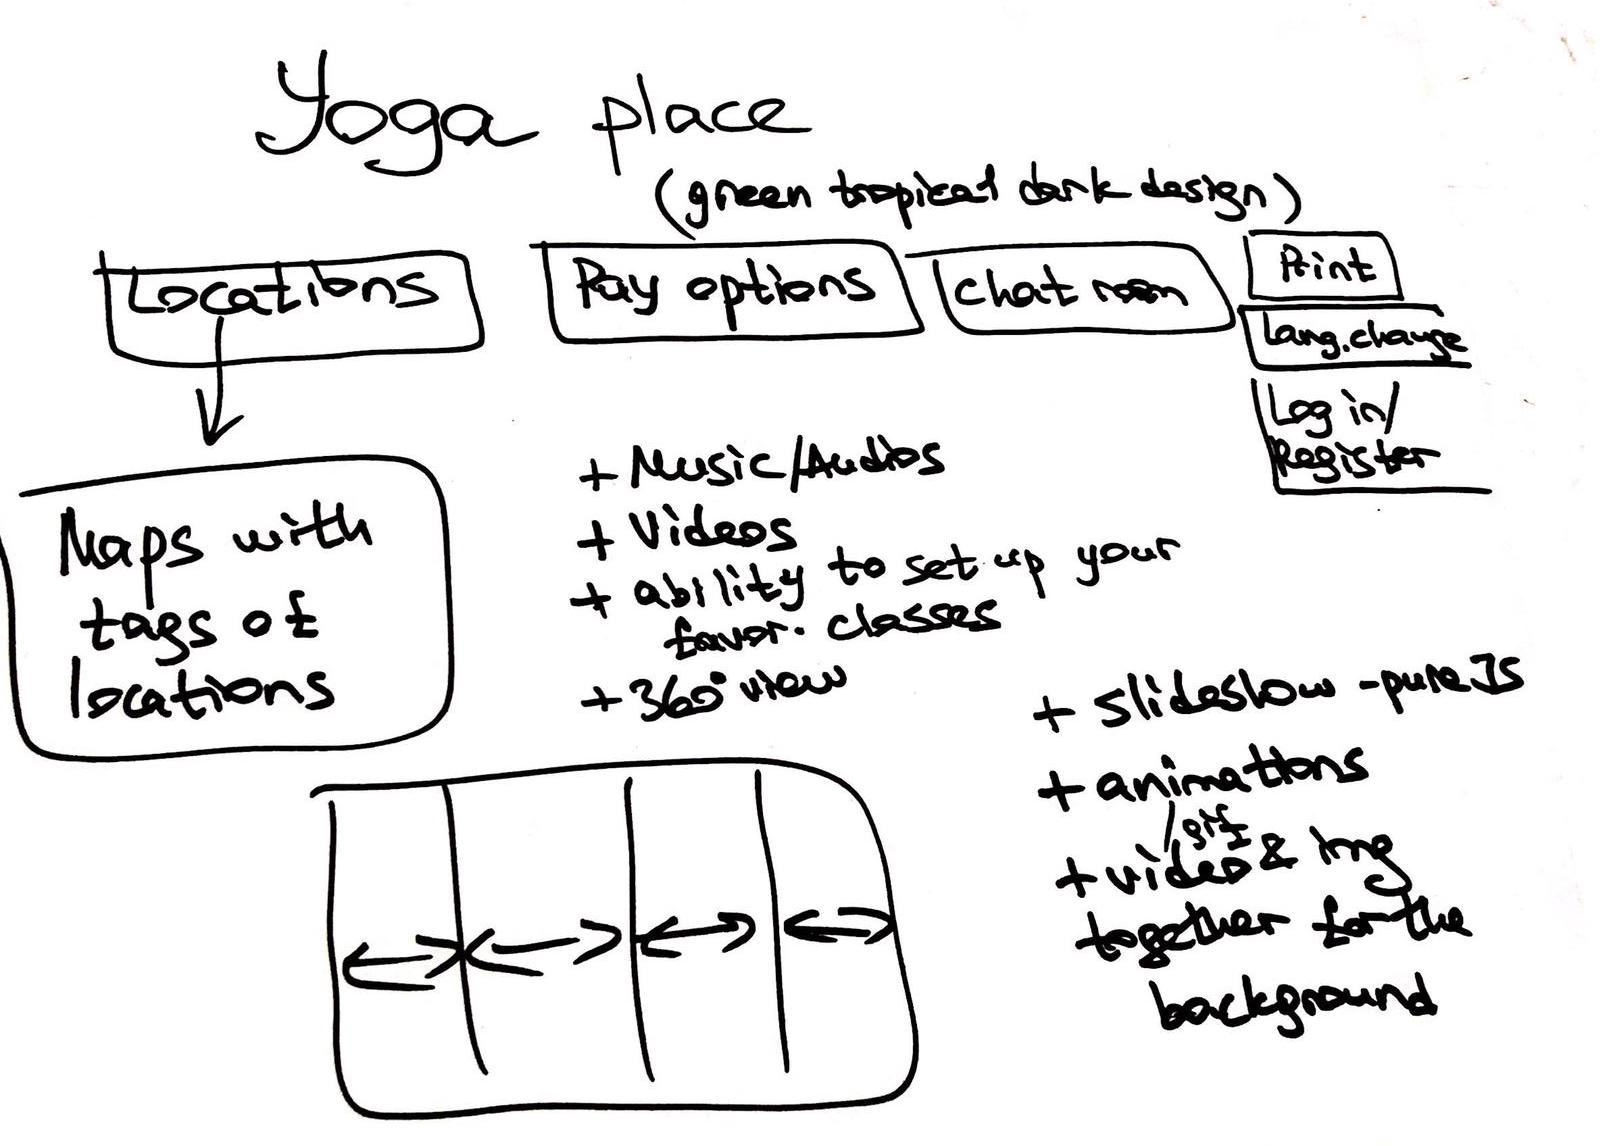 Yoga place
(green tropical dark design)
Locations
Pay options
chat room
Print
Lang. change
Log in/
Register
Maps with
tags of
locations
+ Music/Audios
+ Videos
+ ability to set up your
favor. classes
+ 360° view
+ slideshow - pure JS
+ animations
/gif
+ video & img
together for the
background